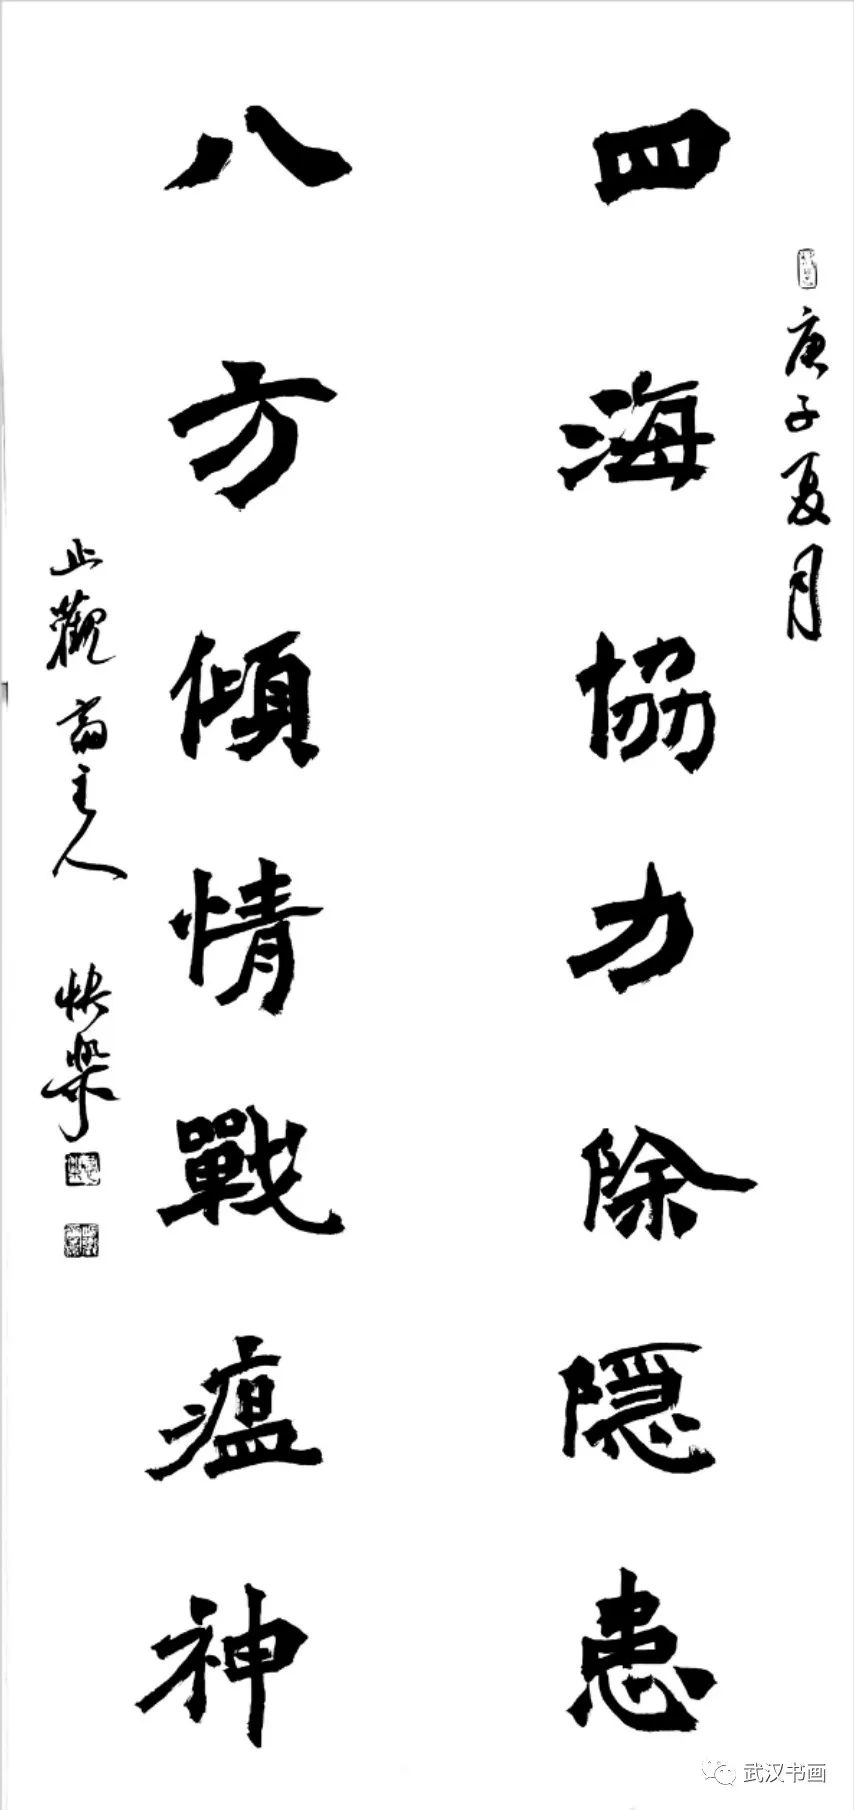 庚子夏月
四海協力除隱患
八方傾情戰瘟神
止觀齋主人 快樂
武汉书画